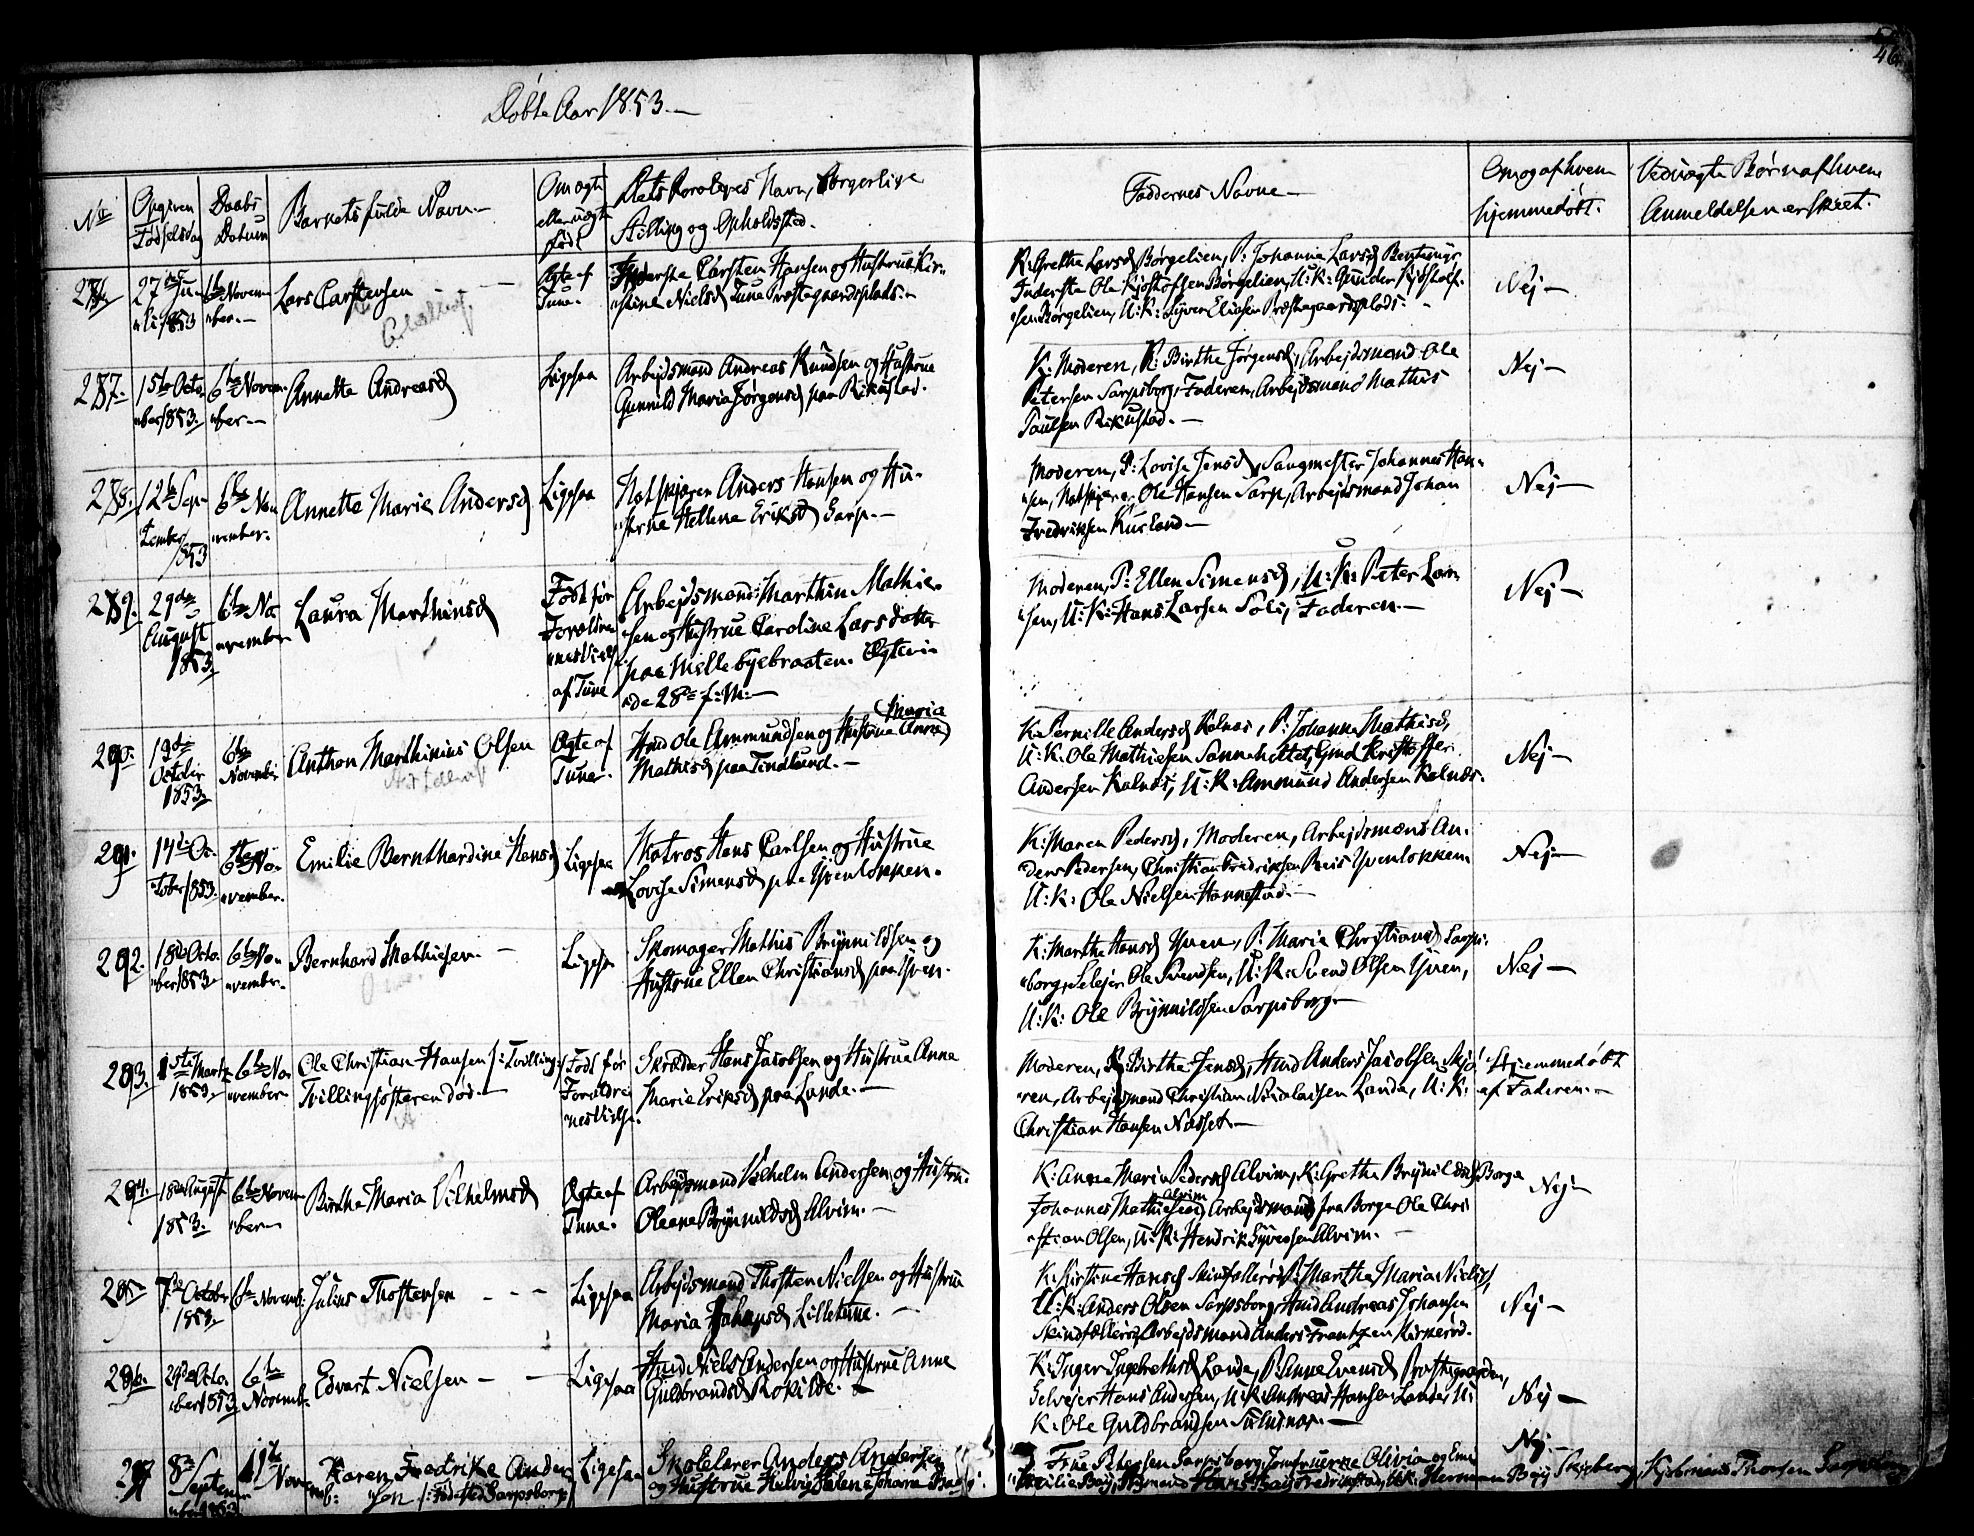 46
Døbte Aar 1853.—
No
Opgiven Fødselsdag
Daabs Datum
Barnets fulde Navn.—
Om ægte eller uægte født
Dets Forældres Navn, borgerlige
Stilling og Opholdssted.
Faddernes Navne—
Om og af hvem
hjemmedøbt.
Ved uægte Børn af hvem
Anmeldelsen er skeet.
286.
27de Ju-
li 1853
6te Novem-
ber.—
Lars Carstensen
Ægte af
Tune.
Inderste Carsten Hansen og Hustrue Kir-
stine Nielsd Tune Præstegaardsplads.—
K: Grethe Larsd Børgelien, P: Johanne Larsd
Inderste Ole Børgelien, U: K: Gunder
Børgelien, U: K: Syver Eliasen Præstegaardsplads.
Nej—
287.
15de Octo-
ber 1853.
6te Novem-
ber—
Annette Andreasd
Ligesaa
Arbejdsmand Andreas Knudsen og Hustrue
Gunnild Maria Jørgensd paa Rikustad.
K: Moderen, P: Birthe Jørgensd, Arbejdsmand Ole
Petersen Sarpsborg, Faderen, Arbejdsmand Mathis
Paulsen Rikustad.—
Nej—
288.
12te Sep-
tember
1853
6te No-
vember.
Annette Marie Andersd
Ligesaa
Anders Hansen og Hu-
strue Hellene Eriksd Sarp.—
Moderen, P: Lovise Jensd, Saugmester Johannes Han-
sen, Ole Hansen Sarp, Arbejdsmand Johan
Fredriksen Kusland—
Nej—
289.
29de
August
1853.
6te No-
vember
Laura Marthinsd
Født før
Foreldre-
nes Vielse
af Tune
Arbejdsmand Marthin Mathie-
sen og Hustrue Caroline Larsdatter
paa Mellebyebraaten. Ægtevi-
ede 28de f: M:—
Moderen, P: Ellen Simensd, U: K: Peter Lar-
sen, U: K: Hans Larsen Soli, Faderen.—
Nej—
290.
13de
October
1853.
6te
November
Anthon Marthinius Olsen
Ægte af
Tune.
Hmd Ole Ammundsen og Hustrue Anne Maria
Mathisd paa Tindlund.—
K: Pernille Andersd Kalnes, P: Johanne Mathisd,
U: K: Ole Mathiesen Gmd Kristoffer
Andersen Kalnes, U: K: Ammund Andersen Kalnes.
Nej—
291.
14de Oc-
tober 1853.
6te No-
vember.
Emilie Bernthardine Hansd
Ligesaa
Matros Hans Carlsen og Hustrue
Lovise Simensd paa Yvenløkken.
K: Maren Pedersd, Moderen, Arbejdsmand An-
ders Pedersen, Christian Fredriksen Reis Yvenløkken
U: K: Ole Nielsen Hannestad.—
Nej—
292.
18de Octo-
ber 1853
6te No-
vember.
Bernhard Mathiesen—
Ligesaa
Skomager Mathis Brynnildsen og
Hustrue Ellen Christiansd paa Yven.
K: Marthe Hansd Yven, P: Marie Christiansd Sarps-
borg, Selejer Ole Svendsen, U: K: Svend Olsen Yven,
U: K: Ole Brynnildsen Sarpsborg—
Nej—
293.
1ste Marts
1853.
6te No-
vember
Ole Christian Hansen /: Tvilling:/
Tvillingsøsteren død.—
Født før
Foreldre-
nes Vielse.
Skrædder Hans Jacobsen og Hustrue Anne
Marie Eriksd paa Lande.—
Moderen, P: Birthe Jensd, Hmd Anders Jacobsen
Arbejdsmand Christian Nicolaisen Lande, U: K:
Christian Hansen Næsset—
Hjemmedøbt
af Faderen.—
294.
18de August
1853.
6te Novem-
ber—
Birthe Maria Vilhelmsd
Ægte af
Tune.
Arbejdsmand Vilhelm Andersen og Hustrue
Oleane Brynnildsd Alvim.—
K: Anne Marie Pedersd Alvim, K: Grethe Brynnildsd Borge
Johannes Mathiesen Alvim Arbejdsmand fra Borge Ole Chri-
stian Olsen, U: K: Hendrik Syversen Alvim.—
Nej—
295.
7de October
1853.
6te Novemb:
Julius Thostensen - - -
Ligesaa
Arbejdsmand Thosten Nielsen og Hustrue
Maria Johansd Lilletune.—
K: Kirstine Hansd P: Marthe Maria Nielsd,
U: K: Anders Olsen Sarpsborg, Hmd Andreas Johansen
Arbejdsmand Anders Frantzen
Nej—
296.
29de Octo-
ber 1853
6te
Novemb.
Edvart Nielsen - -
Ligesaa
Hmd Niels Andersen og Hustrue Anne
Guldbrandsd Rokilde.—
K: Inger Ingebrethsd Lande, P: Anne Evensd Prestegaarden,
Selvejer Hans Andersen, U: K: Andreas Hansen Lande, U:
K: Ole Guldbrandsen—
Nej—
297
8de
Septem-
ber 1853
11te Nove-
mb:
Karen Fredrike Ander-
sen /: Fødested Sarpsborg
Ligesaa
Skolelærer Anders Andersen
og Hustrue Helvig Helene Johanne
Frue Petersen Sarpsborg, Jomfruerne Olivia og Emi-
Hans Fredrikstad, U: K: Herman Sarpsborg, Thorsen Sarpsborg
Nej—